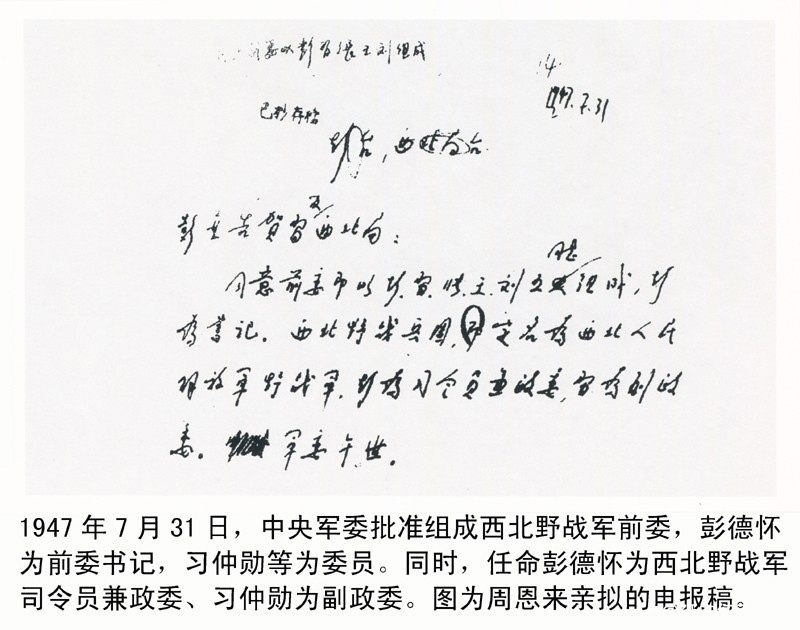 前委以彭習张王刘组成
14
1947.7.31
已抄存档
彭並告贺習及西北局：
同意前委即以彭、習、张、王、刘五同志组成，彭
为書记。西北野战兵团即定名为西北人民
解放军野战军，彭为司令员兼政委，習为副政
委。军委午世。
1947年7月31日，中央军委批准组成西北野战军前委，彭德怀
为前委书记，习仲勋等为委员。同时，任命彭德怀为西北野战军
司令员兼政委、习仲勋为副政委。图为周恩来亲拟的申报稿。